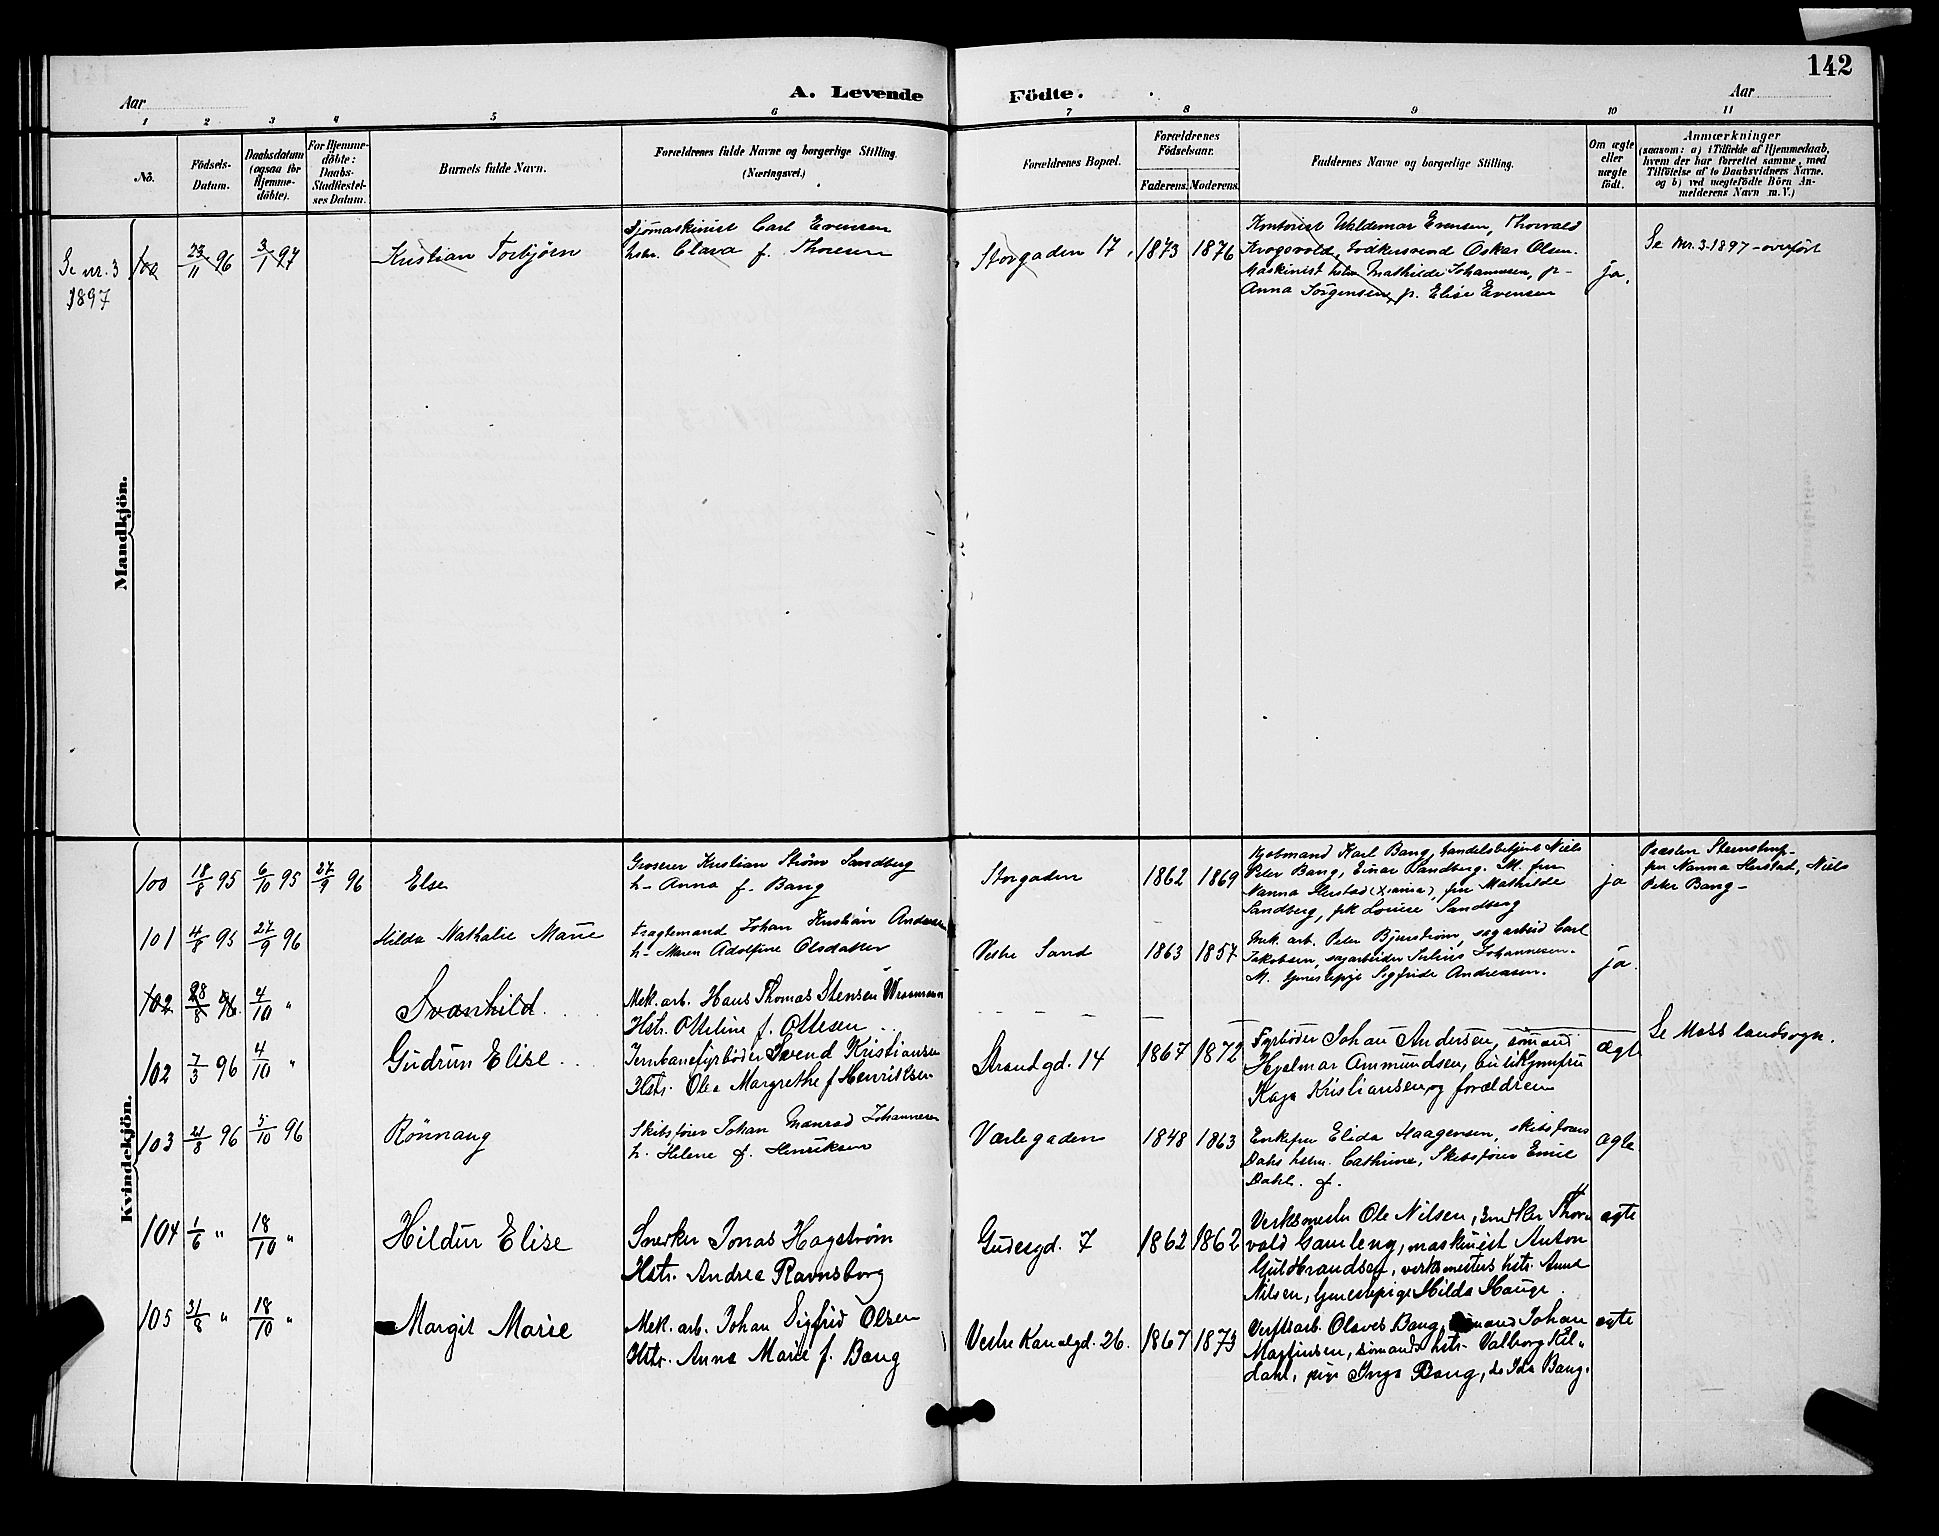 142
Aar
A. Levende
Födte.
Aar
1 2 3 4 5 6 7 8 9 10 11
No.
Födsels-
Datum.
Daabsdatum
(ogsaa for
Hjemme-
döbte).
For Hjemme-
döbte:
Daabs-
Stadfæstel-
ses Datum.
Barnets fulde Navn.
Forældrenes fulde Navne og borgerlige Stilling.
(Næringsvei.)
Forældrenes Bopæl.
Forældrenes
Födselsaar.
Faderens. Moderens.
Faddernes Navne og borgerlige Stilling.
Om ægte
eller
uægte
født.
Anmærkninger
(saasom: a) i Tilfælde af Hjemmedaab,
hvem der har forrettet samme, med
Tilföielse af to Daabsvidners Navne,
og b) ved uægtefödte Börn An-
melderens Navn m.V.)
Mandkjön.
Se nr. 3
1897
100 23/11 96 3/1 97 Kristian Torbjörn
Sjømaskinist Carl Evensen
hstr. Clara f. Thoresen
Storgaden 17. 1873 1876
Kontorist Waldemar Evensen, Thorvald
Krogsvold, Oskar Olsen.
Maskinist hstr Mathilde Johannesen, p-
Anna Jörgensen, p. Elise Evensen
ja.
Se Nr. 3-1897 - overført
Kvindekjön.
100 18/8 95 6/10 95 27/9 96 Else
Groserer Kristian Strøm Sandberg
h- Anna f. Bang
Storgaden 1862 1869
Kjøbmand Karl Bang, handelsbetjent Niels
Peter Bang, Einar Sandberg. M. fru
Nanna Harstad (Xania), fru Mathilde
Sandberg, frk Louise Sandberg
ja
Præsten Steenstrup-
fru Nanna Harstad, Niels
Peter Bang-
101 4/8 95 27/9 96 Hilda Nathalie Marie
Fragtemand Johan Kristian Andersen
h- Maren Adolfine Olsdatter
Vestre Sand 1863 1857
Mek. arb. Peter Bjurstrøm, sagarbeid Carl
Jakobsen, sagarbeider Julius Johannesen.
M. tjenestepige Sigfride Andreasen.
ja.
102 28/8 96. 4/10 " Svanhild
Mek. arb. Hans Thomas Stensen
Hstr. Otteline f. Ottesen
Se Moss landsogn.
102 7/3 96 4/10 " Gudrun Elise
Jernbanefyrböder Svend Kristiansen
Hstr. Olea Margrethe f Henriksen
Strandgd. 14 1867 1872
Fyrböder Johan Andersen, sömand
Hjalmar Ammundsen, jomfru
Kaja Kristiansen og forældrene
ægte
103 21/8 96 5/10 96 Rönnaug
Skibsfører Johan Johannesen
h. Helene f. Henriksen
Værlegaden 1848 1863
Enkefru Elida Haagensen, skibsförer
Dahls hstru. Cathrine, Skibsfører Emil
Dahl. f.
ægte
104 1/6 " 18/10 " Hildur Elise
Snedker Jonas Hagstrøm
Hstr. Andrea Ravnsborg
Gudesgd. 7 1862 1862
Verksmester Ole Nilsen, snedker Thor
vald Gamleng, maskinist Anton
Guldbrandsen, verksmesters hstr. Anna
Nilsen, tjenestepige Hilda Hauge.
ægte
105 31/8 " 18/10 " Margit Marie
Mek. arb. Johan Sigfrid Olsen
Hstr. Anna Marie f. Bang
Vestre Kanalgd. 26. 1867 1873
Verftsarb. Olaves Bang, sömand Johan
Martinsen, sömands hstr. Valborg Kil-
dahl, pige Inga Bang, do Ida Bang.
ægte